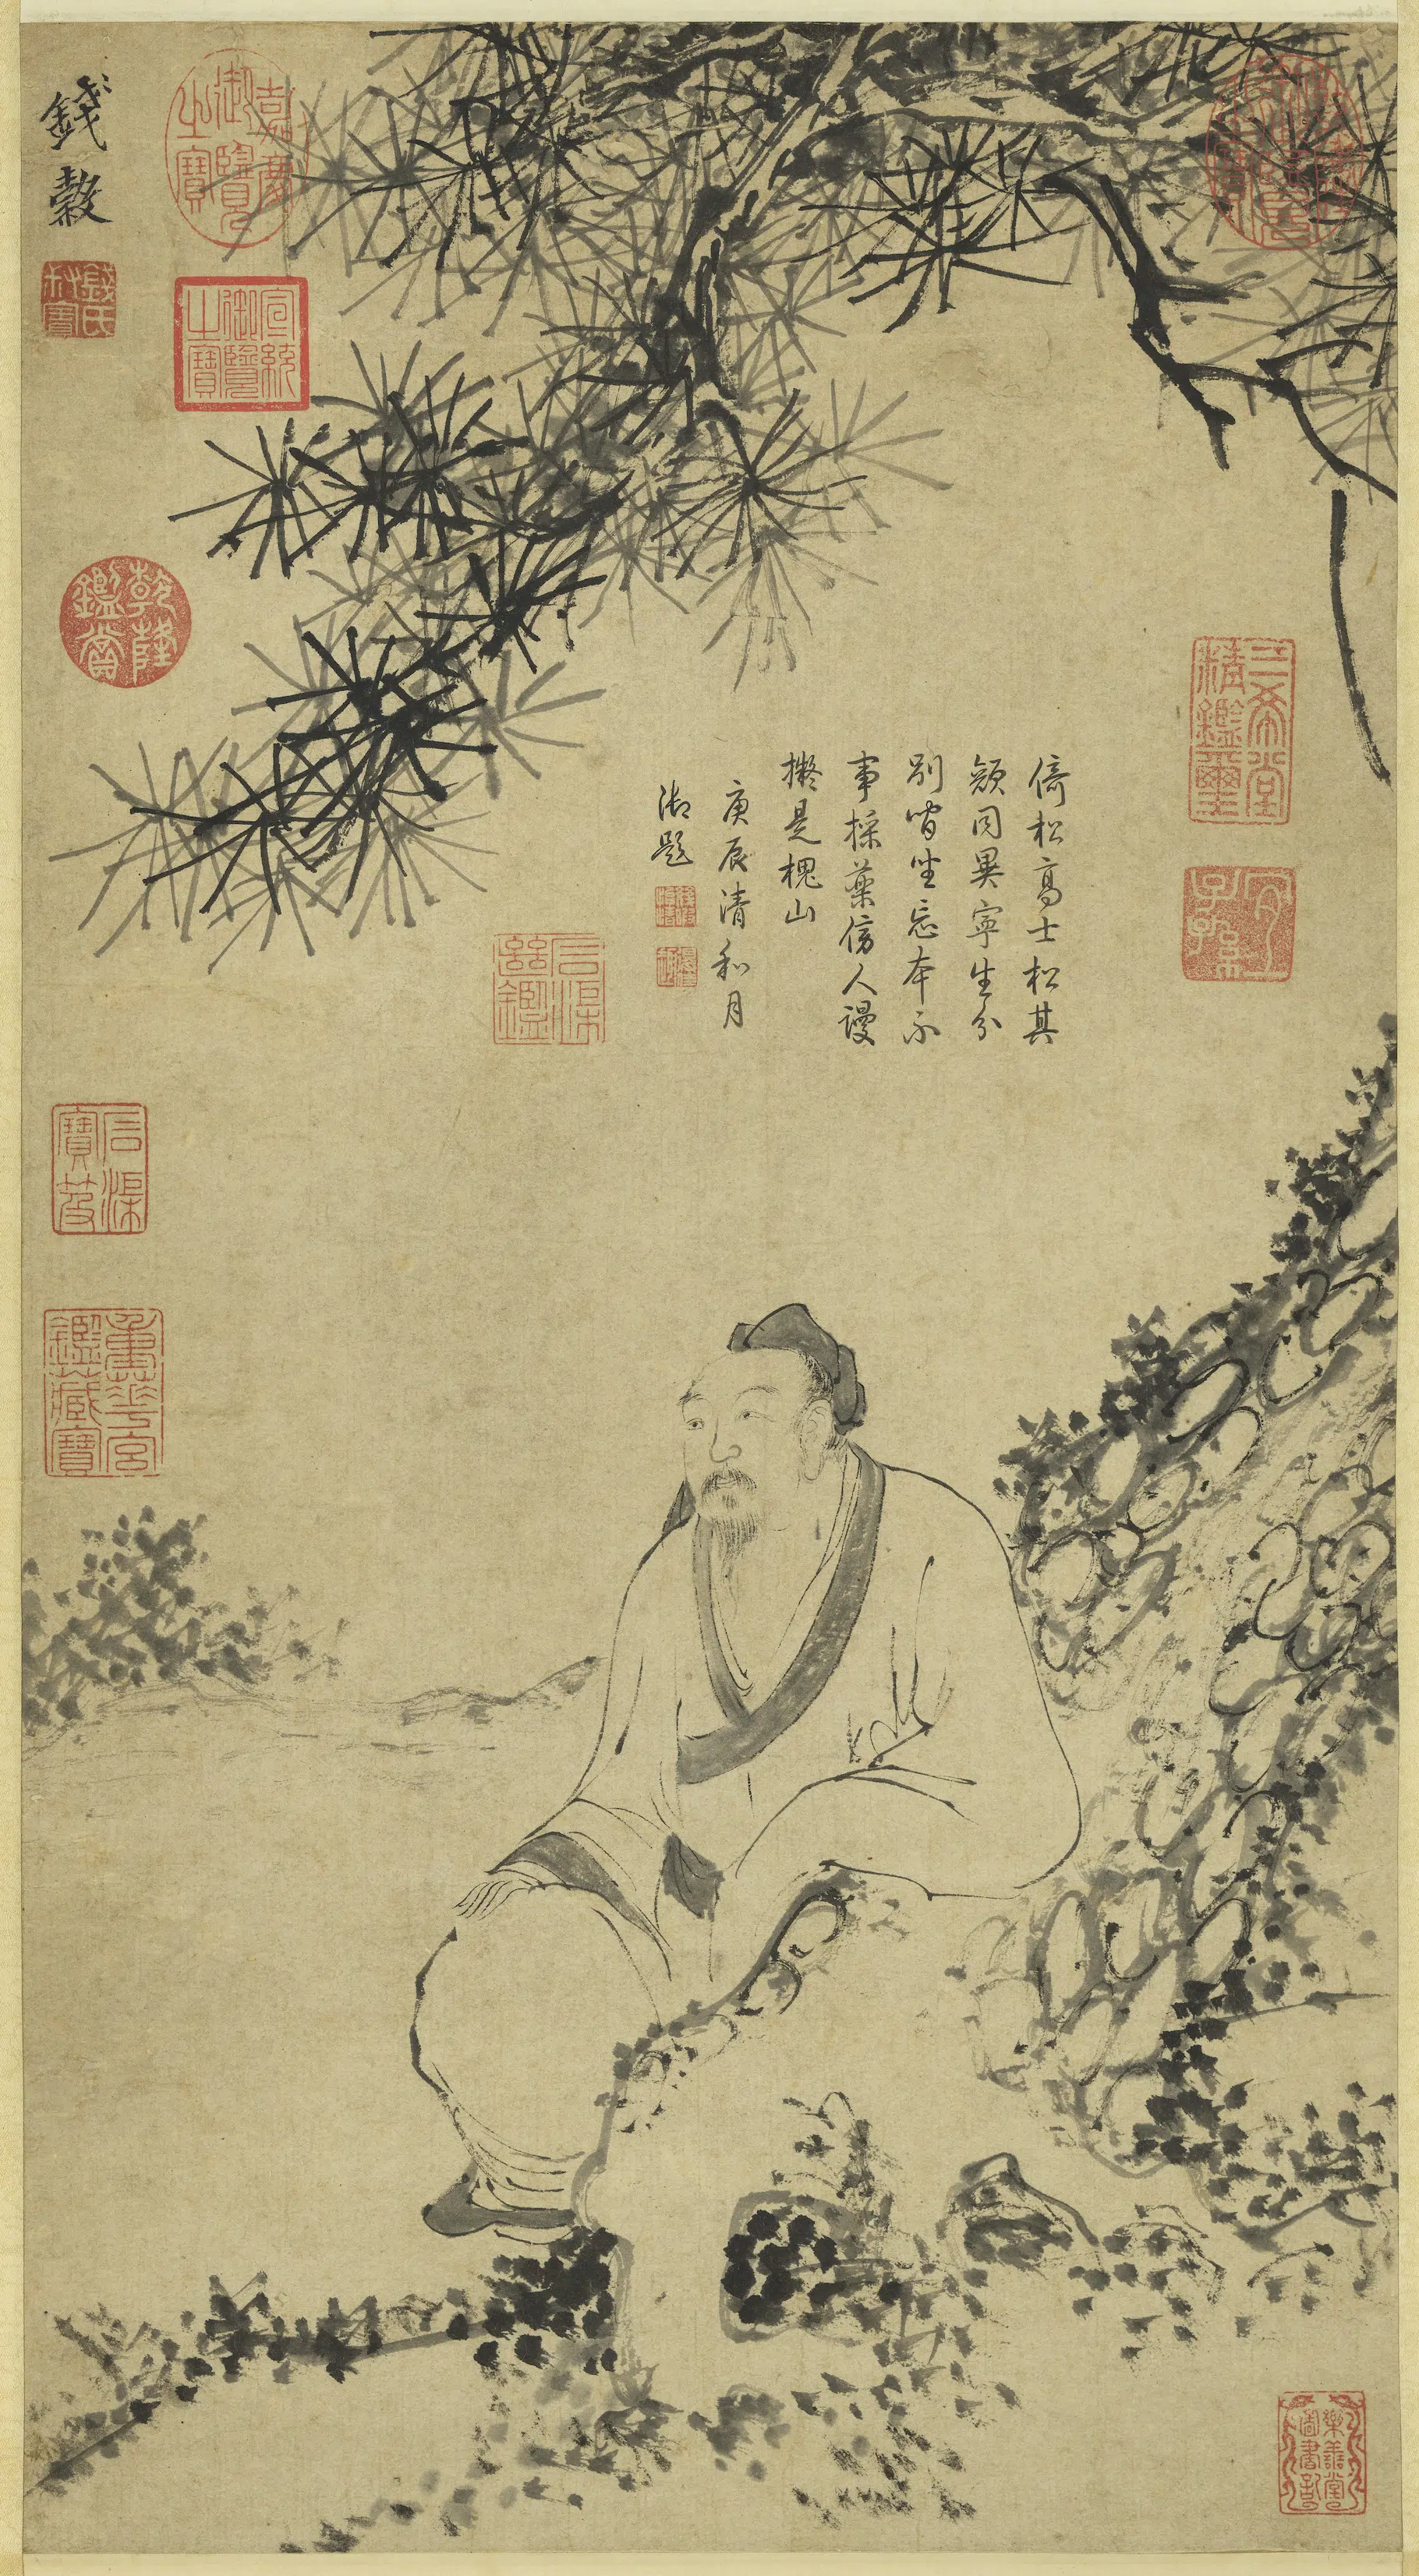 乾隆御覽之寶
三希堂精鑑璽
宜子孫
倚松高士松其
顏同異寧生分
別間坐忘本不
事採藥傍人謾
擬是槐山
庚辰清和月
御題
石渠繼鑑
嘉慶御覽之寶
宣統御覽之寶
錢穀
錢氏叔寶
乾隆鑑賞
石渠寶笈
重華宮鑑藏寶
樂善堂圖書記